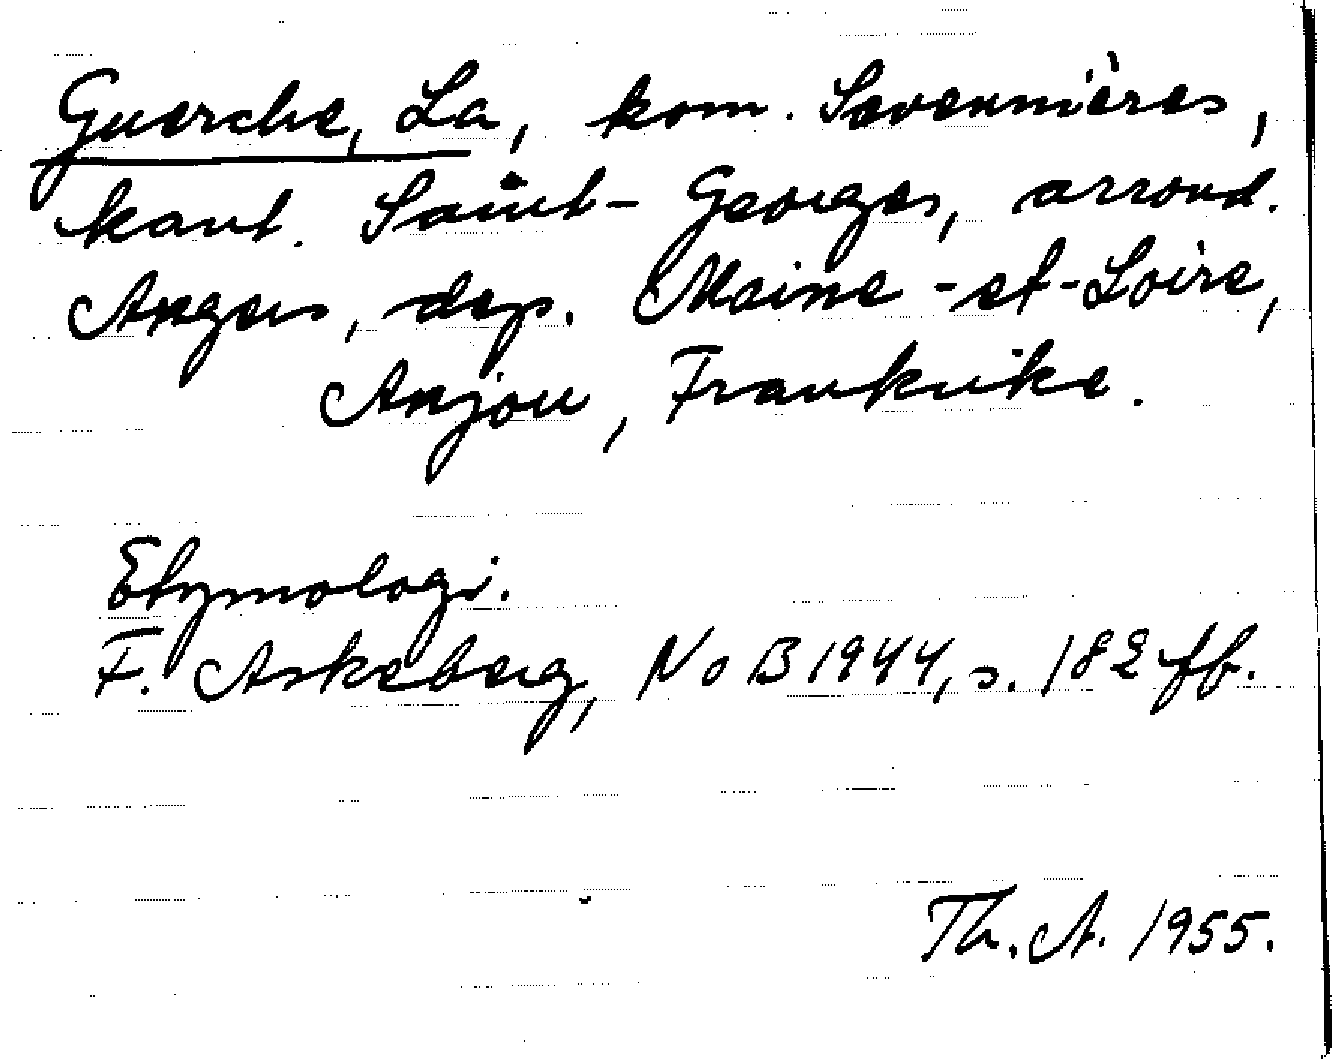 Guerche, La, kom. Savennières,
kant. Saint-Georges, arrond.
Angers, dep. Maine-et-Loire,
Anjou, Frankrike.
Etymologi.
F. Askeberg, NoB 1944, s. 182 ff.
Th. A. 1955.